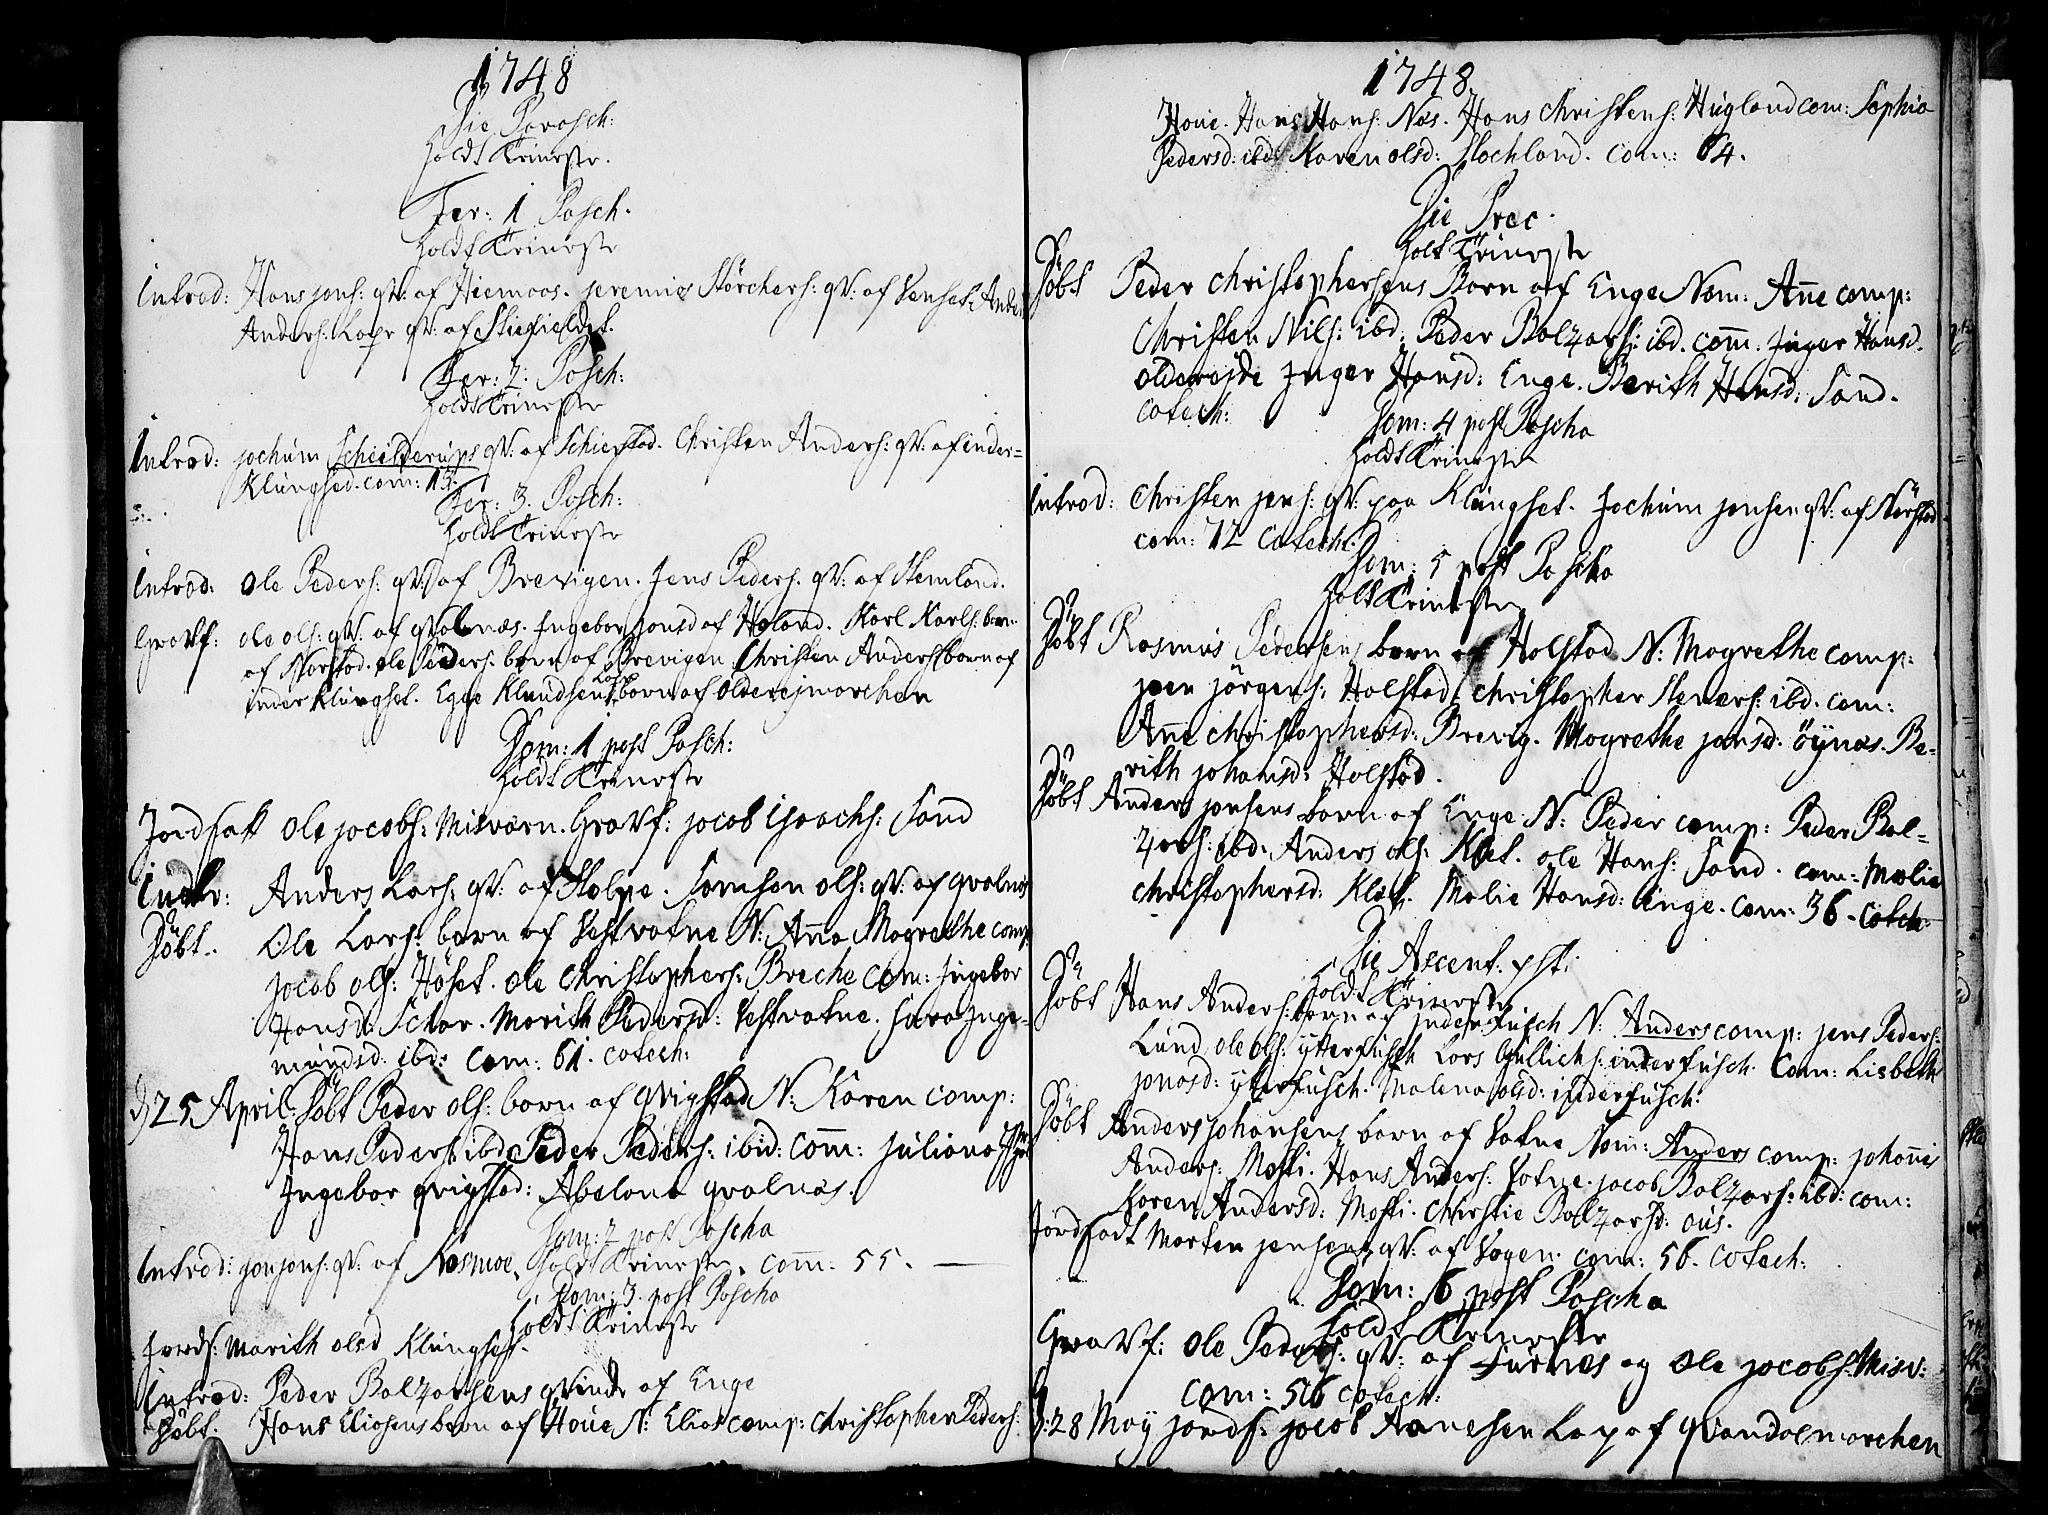 1748
Die Parasch:
holdt Trineste.
Fer: 1 Pasch.
holdt Trineste
Introd: Hans jons: qv: af Hiemoos. jeremies Störchers: qv: af Venset. Anders
Anders: Lapr qv: af Skiefieldet.
Fer: 2. Pasch:
holdt Trineste
Introd: jochum Schielderups qv: af Schierstad. Christen Anders: qv: af inder=
Klungsed. com: 15.
Fer: 3. Pasch:
holdt Trineste
Introd: Ole Peders: qv: af Brevigen. Jens Peders. qv: af Stemland.
Gravf: ole ols: qv: af qvalnæs. Ingebor jonsd af Haland. Karl Karls: barn
af Norstad. ole Peders: barn af Brevigen. Christen Anders barn af
inder Klungset. Egge Kludsen Lap barn af Olderejmarchen
Dom: 1 post Pasch:
holdt Trineste
Jordfatt Ole jacobs: Misværn. Gravf: jacob Isaachs: Sand
Indtr: Anders Lars: qv: af Stolpe. Samson ols: qv: af qvalnæs
Döbt. Ole Lars: barn af Vestvatne N: Anna Magrethe comp
jacob ols: Höset. ole Christophers: Breche com: Ingebor
Hansd: Schar. Marith Pedersd: Vestvatne. Sara Inge-
mundsd: ibd: com: 61. catech:
d 25 April. Döbt Peder ols: barn af qvigstad N: Karen comp:
Hans Peders: ibd Peder Peders: ibid: com: juliana
Ingebor qvigstad: Abelona qvalnæs.
Dom: 2 post Pascha
Introd: jon jons: qv: af Kosmoe. holdt Trineste. com: 55.
Dom: 3. post Pascha
holdt Trineste
Jordf: Marith olsd Klungset.
Introd: Peder Balzarsens qvinde af Enge
Döbt. Hans Eliasens barn af Houe N: Elias comp: Christopher Peders:
1748
Houe. Hans Hans: Næs. Hans Christens: Hugland com: Sophia
Pedersd: ibd: Karen olsd: Stochland. com: 64.
Die Prec.
holt Trineste
Döbt Peder Christophersens Barn af Enge Nom: Anne comp:
Christen Nils: ibd: Peder Balzars: ibd. com: Inger Hansd.
olderejde Inger Hansd: Enge. Berith Hansd: Sand.
catech:
Dom: 4 post Pascha
holdt Trineste
Introd: Christen jens: qv: paa Klungset. Jochum jensen qv: af Nörstad
com: 72 Catech:
Dom: 5 post Pascha
holt Trineste
Döbt Rasmus Pedersens barn af Halstad N: Magrethe comp:
joen jörgens: Halstad. Christopher Steners: ibd. com:
Anne Christophersd: Brevig. Magrethe jonsd: öynæs. Be-
rith johansd: Halstad.
Döbt Anders jonsens barn af Enge N: Peder comp: Peder Bal-
zars: ibd. Anders ols: Klet. ole Hans: Sand. com: Malie
Christophersd: Klæt. Malie Hansd: Enge. com: 36. Catch:
Die Ascent. xsti
holdt Trineste
Döbt Hans Anders: barn af Inderfusch N: Anders comp: jens Peders:
Lund, ole ols: ytterfusch Lars Gullichs: inderfusch. Com: Lisbeth
jonasd: ytterfusch. Malena olsd: inderfusch:
Döbt Anders johansens barn af Vatne Nom: Anders comp: johannis
Anders: Mosti. Hans Anders: Vatne. jacob Balzars: ibd: com:
Karen Andersd: Mosti. Christie Balzarsd: aus.
Jordfast Morten jensens qv: af Vogen. com: 56. catech:
Dom: 6 post Pascha
holdt Trineste
Gravf: Ole Peders: qv: af Furnæs og Ole jacobs: Misv:
com: 56 catech:
d: 28 May jordf: jacob Aanesen Lap af qvandalmarchen